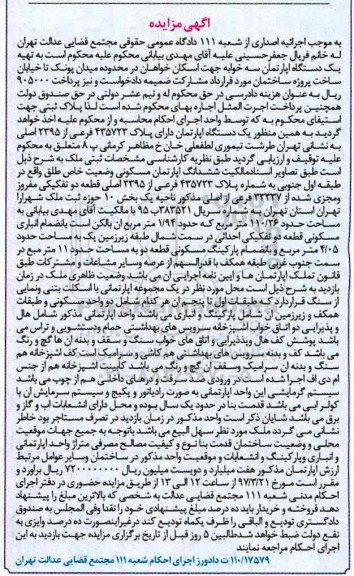 آگهی مزایده
به موجب اجرائیه اصداری از شعبه ۱۱۱ دادگاه عمومی حقوقی مجتمع قضایی عدالت تهران
له خانم فریال جعفرحسینی علیه آقای مهدی بیابانی محکوم علیه محکوم است به تهیه
یک دستگاه آپارتمان سه خوابه جهت اسکان خواهان در محدوده میدان پونک تا خیابان
ساخت پروژه ساختمان مورد قرارداد مشارکت ضمیمه دادخواست و نیز پرداخت ۹۰۵۰۰۰
ریال به عنوان هزینه دادرسی در حق محکوم له و نیم عشر دولتی در حق صندوق دولت
همچنین پرداخت اجرت المثل اجاره بهای محکوم شده است لذا پلاک ثبتی جهت
استیفای محکوم به که توسط واحد اجرای احکام محاسبه و از محکوم علیه اخذ خواهد
گردید به همین منظور یک دستگاه آپارتمان دارای پلاک ۴۳۵۷۲۳ فرعی از ۲۳۹۵ اصلی
به نشانی تهران طرشت تیموری لطفعلی خان خ مظاهر کرمانی پ ۸ متعلق به محکوم
علیه توقیف و ارزیابی گردید طبق نظریه کارشناسی مشخصات ثبتی ملک به شرح ذیل
است طبق تصاویر اسنادمالکیت ششدانگ آپارتمان مسکونی وضعیت خاص طلق واقع در
طبقه اول جنوبی به شماره پلاک ۴۳۵۷۲۳ فرعی از ۲۳۹۵ اصلی قطعه دو تفکیکی مفروز
ومجزی شده از ۲۲۳۷ فرعی از اصلی مذکور ناحیه یک بخش ۱۰ حوزه ثبت ملک شهرآرا
تهران استان تهران به شماره سریال ۳۸۳۵۲۱ب ۹۵ با مالکیت آقای مهدی بیابانی به
مساحت حدود ۱۱۰/۲۶ متر مربع که حدود ۱/۹۴ متر مربع آن بالکن است بانضمام انباری
مسکونی قطعه دو تفکیکی احداثی در سمت شمال طبقه زیرزمین یک به مساحت حدود
۴/۰۵ متر مربع و بانضمام پارکینگ مسکونی قطعه دو به مساحت حدود ۱۱ متر مربع در
سمت جنوب غربی طبقه همکف با قدرالسهم از عرصه وسایر مشاعات و مشترکات طبق
قانون تملک آپارتمان ها و آیین نامه اجرایی آن می باشد وضعیت ظاهری ملک در زمان
بازدید به شرح ذیل است محل مورد نظر در یک مجموعه آپارتمانی با اسکلت بتنی ونمایی
از سنگ قراردارد که طبقات اول تا پنجم آن هر کدام شامل دو واحد مسکونی و طبقات
همکف و زیرزمین آن شامل پارکینگ و انباری می باشد واحد آپارتمانی مذکور شامل هال
و پذیرایی دو اتاق خواب آشپزخانه سرویس های بهداشتی حمام ودستشویی و تراس می
باشد پوشش کف هال وپذیرایی و اتاق های خواب سنگ و سقف و بدنه آن ها گچ و رنگ
می باشد کف و بدنه سرویس های بهداشتی هم کاشی و سرامیک است کف آشپزخانه هم
سنگ و بدنه آن سرامیک وسقف آن گچ و رنگ می باشد کابینت آشپزخانه هم از جنس
ام دی اف اجرا شده است در ورودی ضد سرقت و درهای داخلی هم از چوب می باشد
سیستم گرمایشی این واحد آپارتمانی به صورت رادیاتور و پکیج و سیستم سرمایش آن با
کولر آبی می باشد قدمت بنا در حدود یک سال بوده و محل دارای انشعابات آب و گاز و
برق می باشد شایان ذکر است واحد مذکور در زمان بازدید در تصرف مستاجر بود خاطر
نشان می گردد ملک مورد نظر سهل البیع می باشد باتوجه به جمیع جهات موقعیت
محلی و وضعیت ساختمان قدمت بنا نوع و کیفیت مصالح مصرفی متراژ واحد آپارتمانی
و انباری وپارکینگ و انشعابات و موقعیت واحد مذکور در ساختمان وسایر عوامل مرتبط
ارزش آپارتمان مذکور هفت میلیارد و دویست میلیون ریال ۷۲۰۰۰۰۰۰۰۰ ریال برآورد و
مقرر است مورخ ۹۷/۳/۲۱ از ساعت ۱۲ الی ۱۳ از طریق مزایده حضوری در دفتر اجرای
احکام مدنی شعبه ۱۱۱ مجتمع قضایی عدالت به شخصی که بالاترین مبلغ را پیشنهاد
دهد فروخته و خریدار باید ده درصد مبلغ پیشنهادی خود را نقدا وفی المجلس به صندوق
دادگستری تودیع و الباقی را ظرف یکماه تودیع کند درغیراینصورت ده درصد واریزی به
نفع دولت ضبط خواهد شد طالبین ۵ روز قبل از تاریخ برگزاری مزایده جهت بازدید به این
اجرای احکام مراجعه نمایند
۱۱۰/۱۷۵۷۹ ت دادورز اجرای احکام شعبه ۱۱۱ مجتمع قضایی عدالت تهران